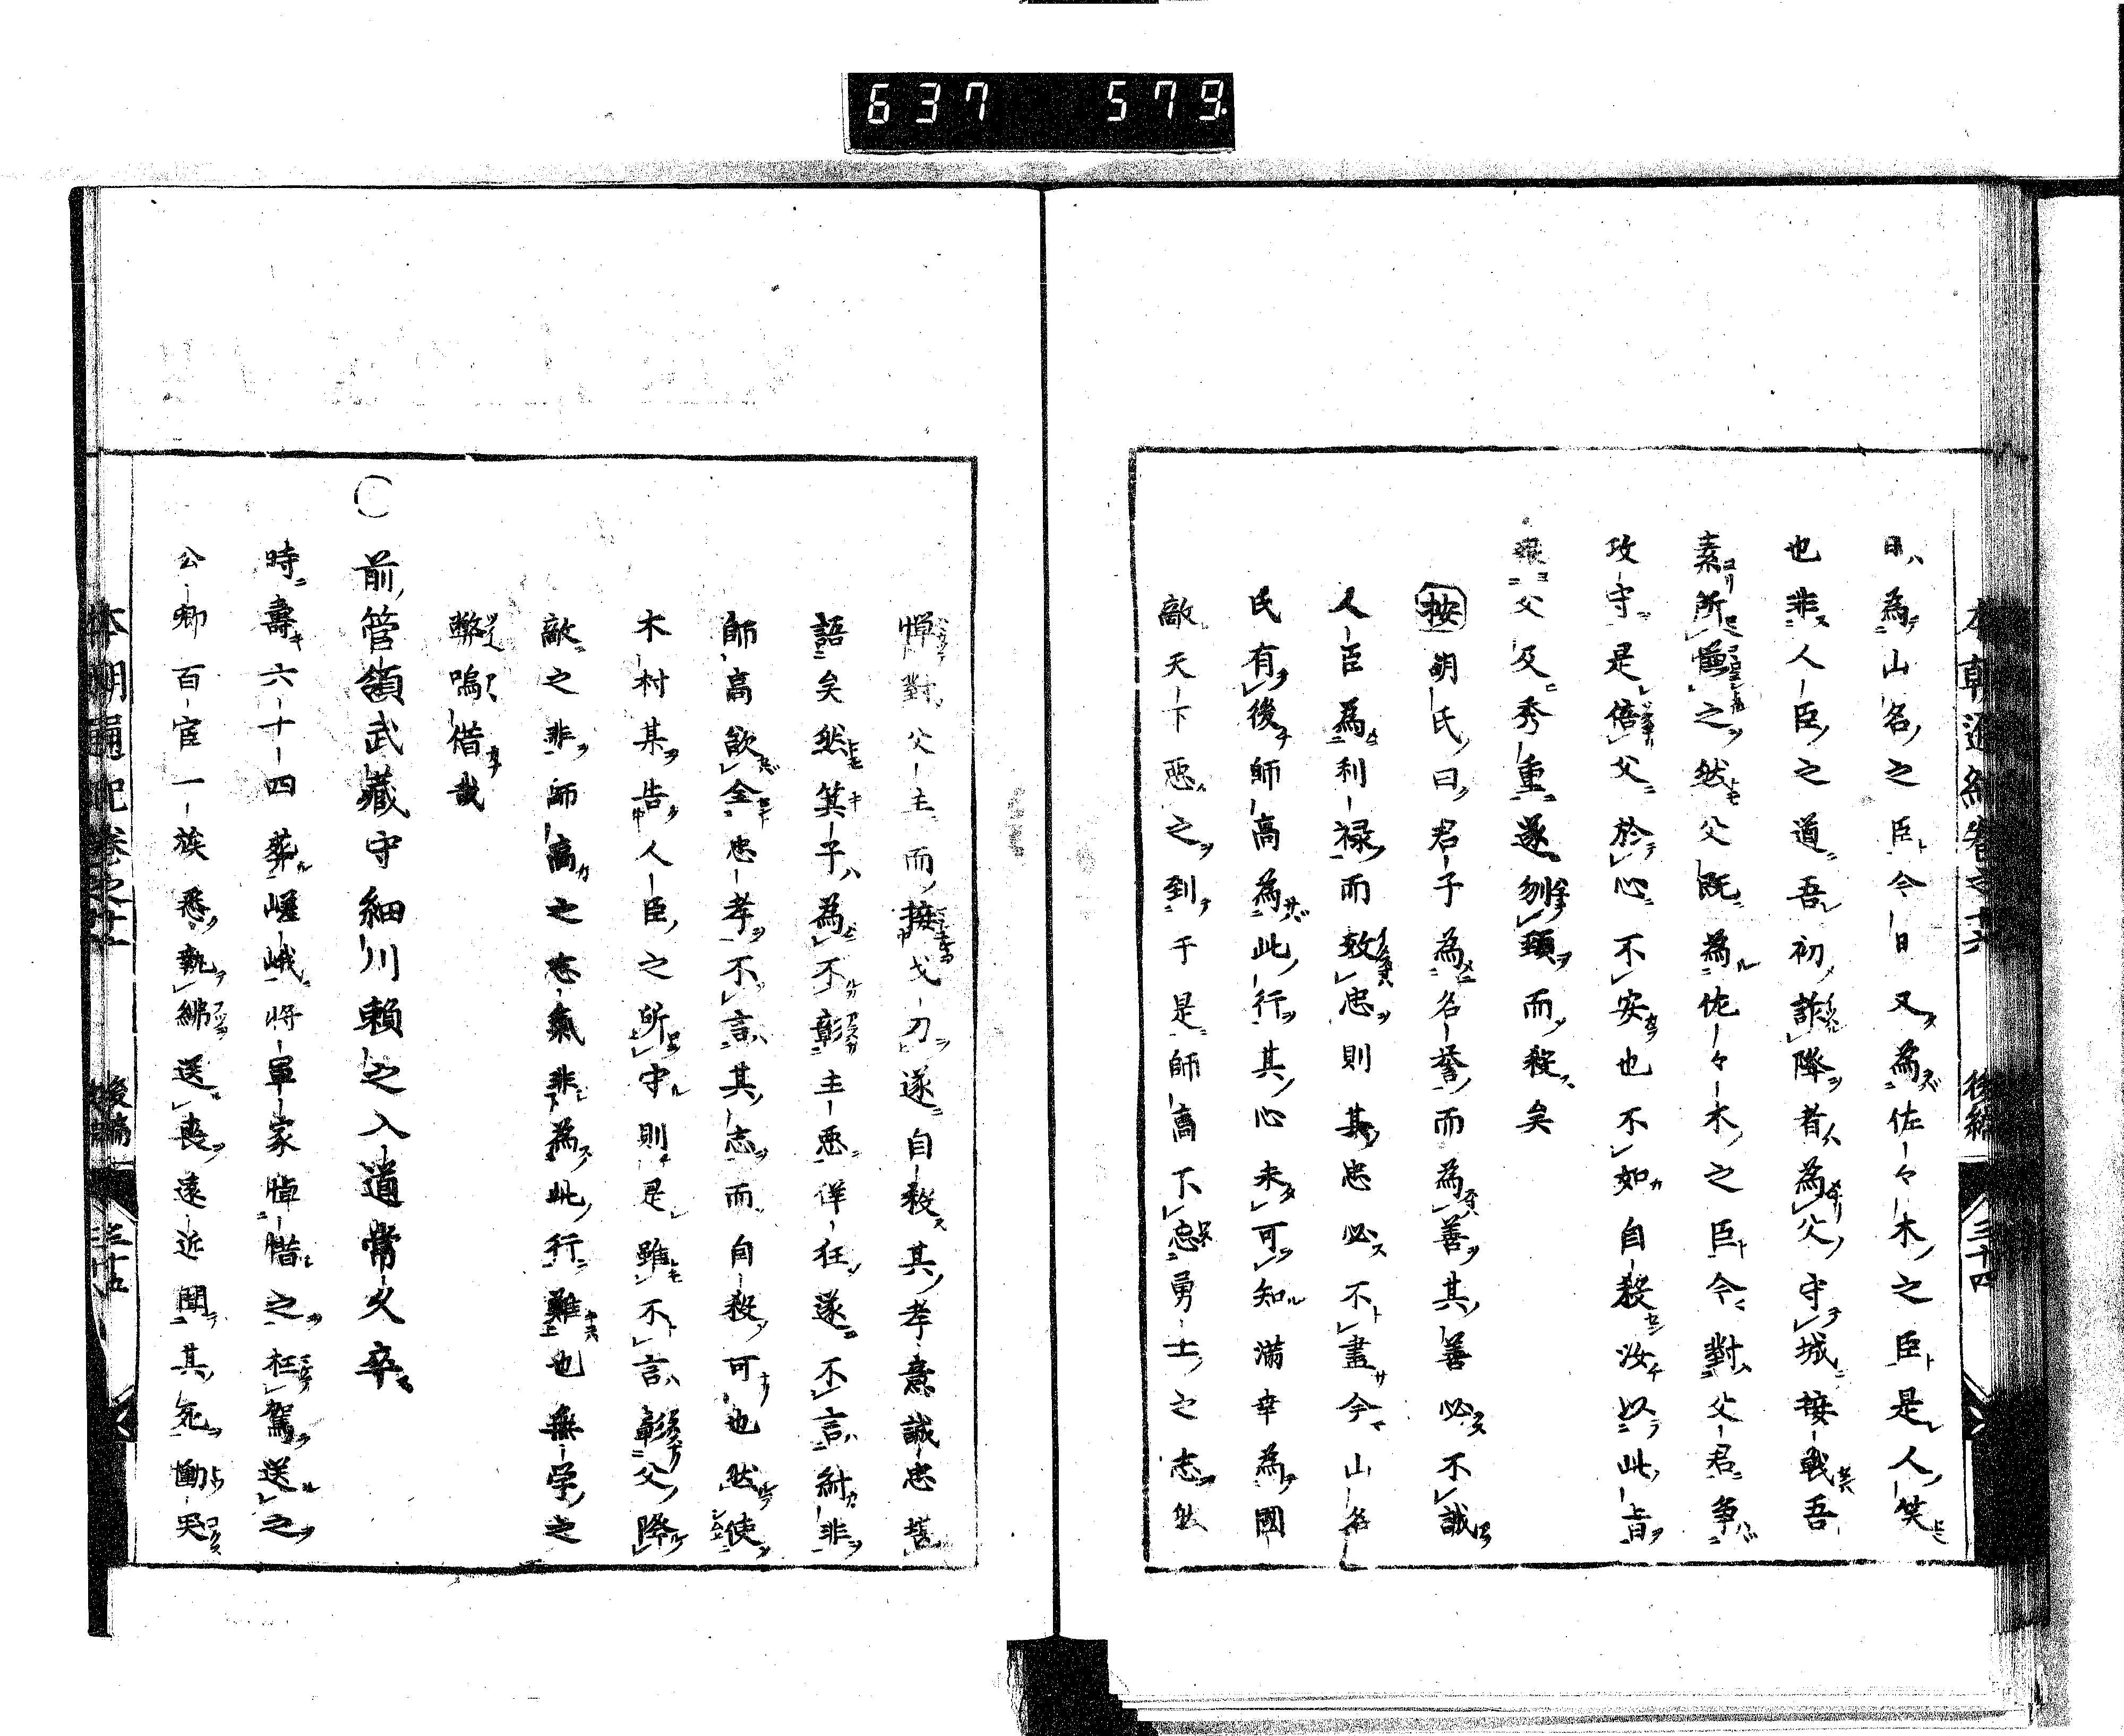 637 579
本朝通紀卷之十六 後編 三十四
日為山名之臣今日又為佐々木之臣是人笑
也非人臣之道吾初詐降者為父守城接戰吾
素所憤之然父既為佐々木之臣今對父君爭
攻守是倍父於心不安也不如自殺汝以此旨
父及秀重遂刎頸而殺矣
按胡氏曰君子為名譽而為善其善必不誠
人臣為利祿而致忠則其忠必不盡今山名
氏有後師高為此行其心未可知滿幸為國
敵天下惡之到于是師高不忘勇士之志然
憚對父主而接戈刀遂自殺其孝意誠忠甚
語矣然箕子為不彰主惡佯狂遂不言紂非
師高欲全忠孝不言其志而自殺可也然使
木村某告人臣之所守則是雖不言彰父降
敵之非師高之志氣非為此行難也無学之
弊嗚惜哉
○前管領武藏守細川賴之入道常久卒
時壽六十四葬嵯峨將軍家悼惜之枉駕送之
公卿百官一族悉執紼送喪遠近聞其死慟哭
本朝通紀卷之十六 後編 三十五